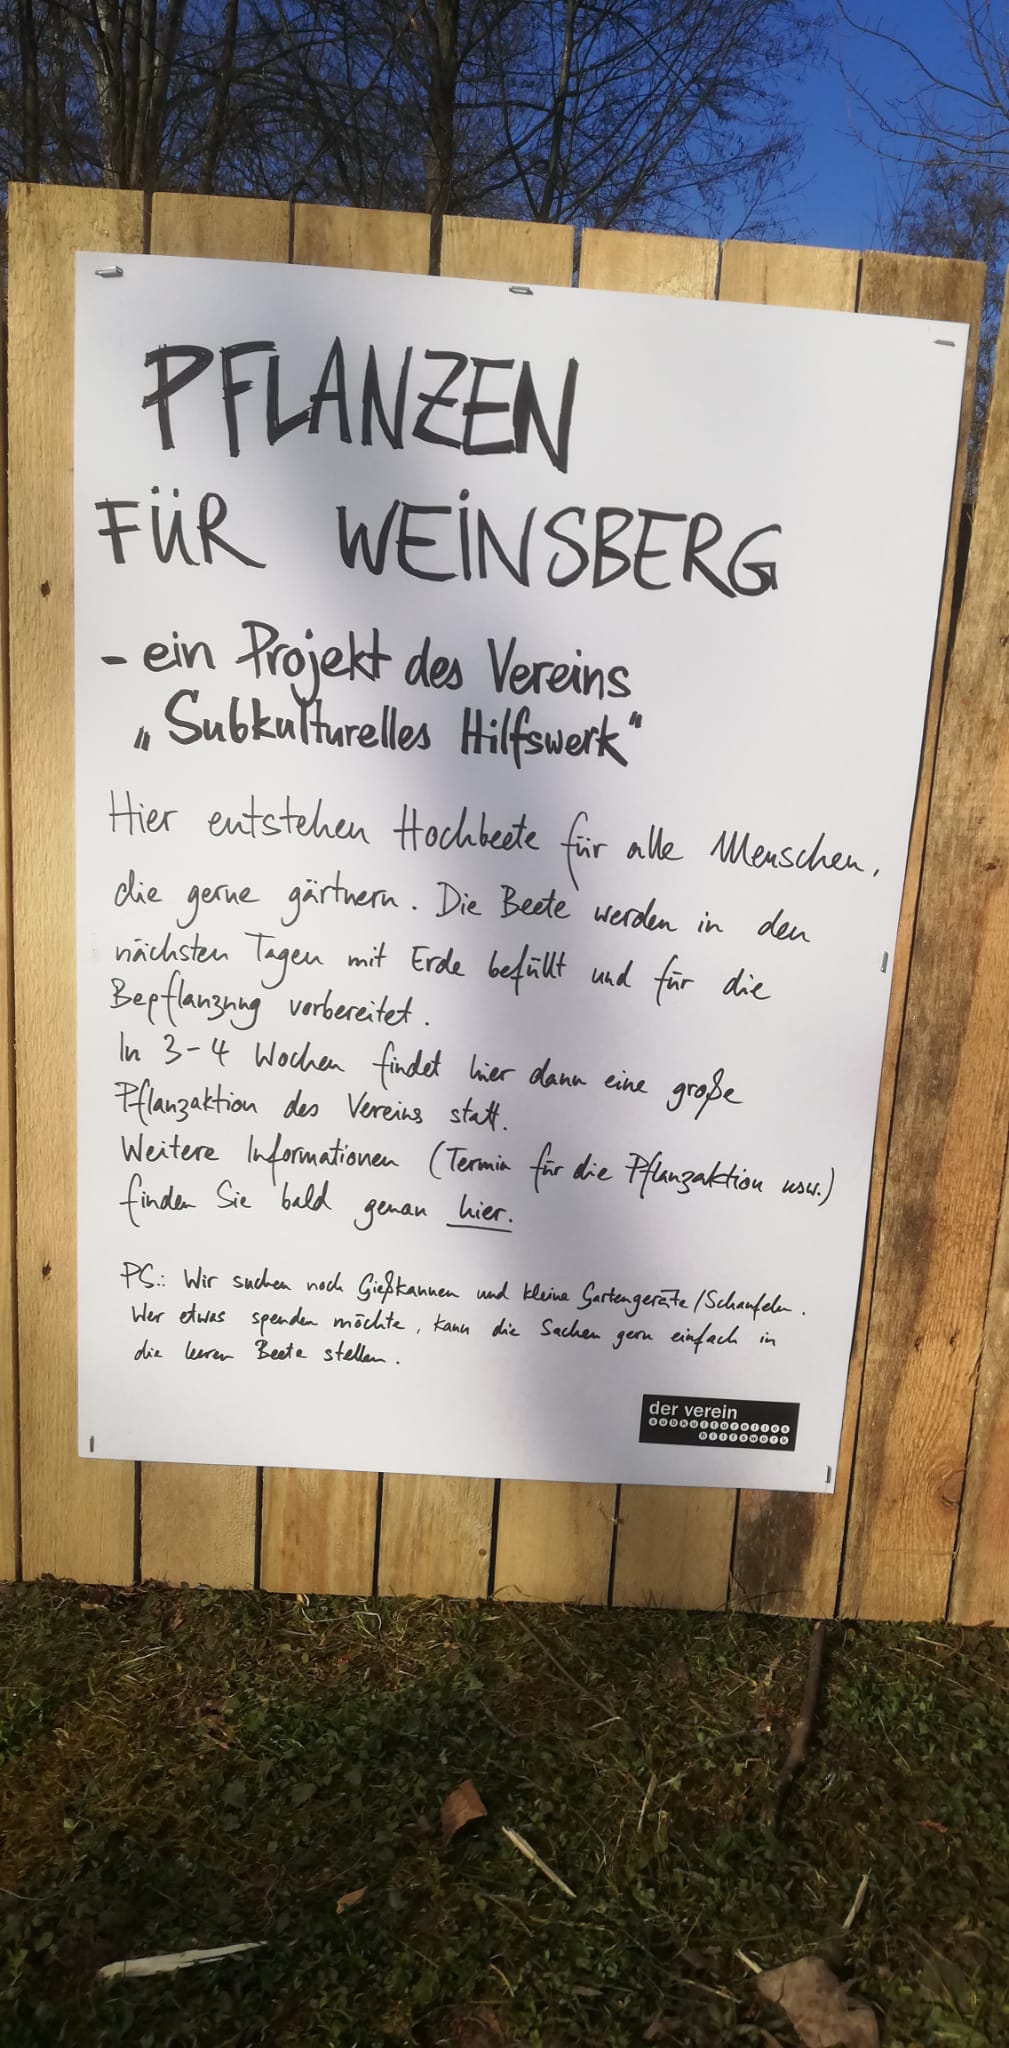 PFLANZEN
FÜR WEINSBERG
- ein Projekt des Vereins
„Subkulturelles Hilfswerk"
Hier entstehen Hochbeete für alle Menschen,
die gerne gärtnern. Die Beete werden in den
nächsten Tagen mit Erde befüllt und für die
Bepflanzung vorbereitet.
In 3-4 Wochen findet hier dann eine große
Pflanzaktion des Vereins statt.
Weitere Informationen (Termin für die Pflanzaktion usw.)
finden Sie bald genau hier.
PS.: Wir suchen noch Gießkannen und kleine Gartengeräte/Schaufeln.
Wer etwas spenden möchte, kann die Sachen gern einfach in
die leeren Beete stellen.
der verein
subkulturelles
hilfswerk